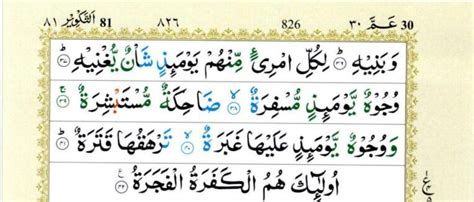 30 عَمَّ ٣٠ 826 ٨٢٦ 81 اَلتَّكْوِيْر ٨١
وَبَنِيْهِ ۝٣٦ لِكُلِّ امْرِئٍ مِّنْهُمْ يَوْمَئِذٍ شَاْنٌ يُّغْنِيْهِ ۝٣٧
وُجُوْهٌ يَّوْمَئِذٍ مُّسْفِرَةٌ ۝٣٨ ضَاحِكَةٌ مُّسْتَبْشِرَةٌ ۝٣٩
وَوُجُوْهٌ يَّوْمَئِذٍ عَلَيْهَا غَبَرَةٌ ۝٤٠ تَرْهَقُهَا قَتَرَةٌ ۝٤١
اُولٰٓئِكَ هُمُ الْكَفَرَةُ الْفَجَرَةُ ۝٤٢